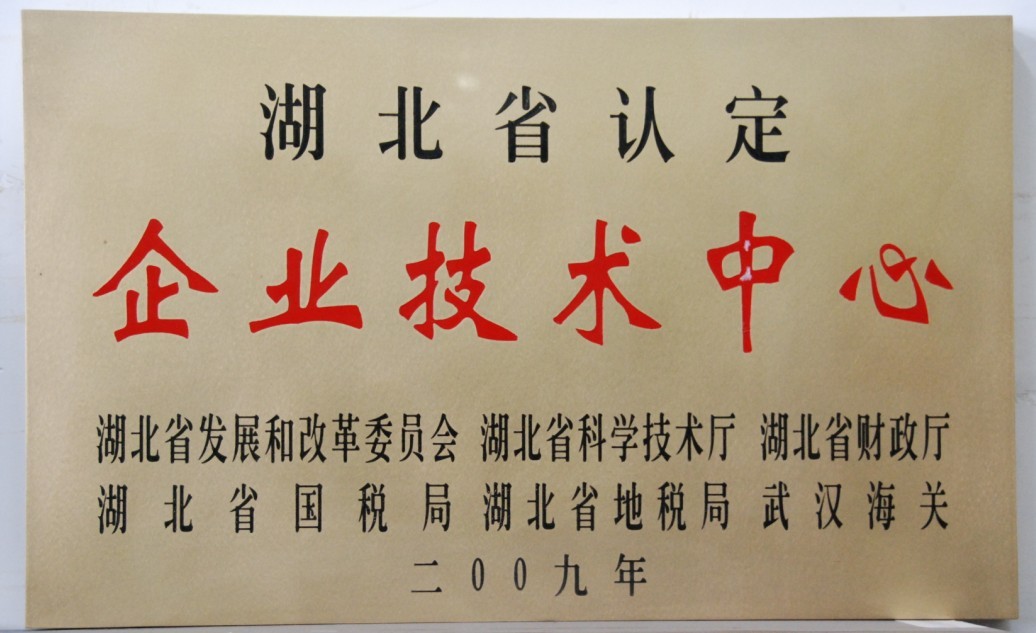 湖北省认定
企业技术中心
湖北省发展和改革委员会 湖北省科学技术厅 湖北省财政厅
湖北省国税局 湖北省地税局 武汉海关
二00九年